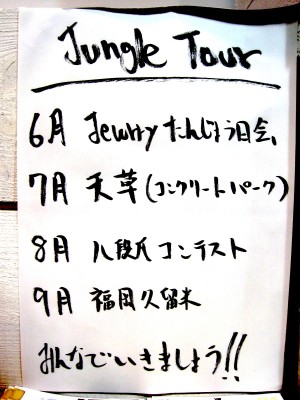 Jungle Tour
6月 Jewrry たんじょう日会、
7月 天草(コンクリートパーク)
8月 八段氏コンテスト
9月 福岡久留米
みんなでいきましょう!!